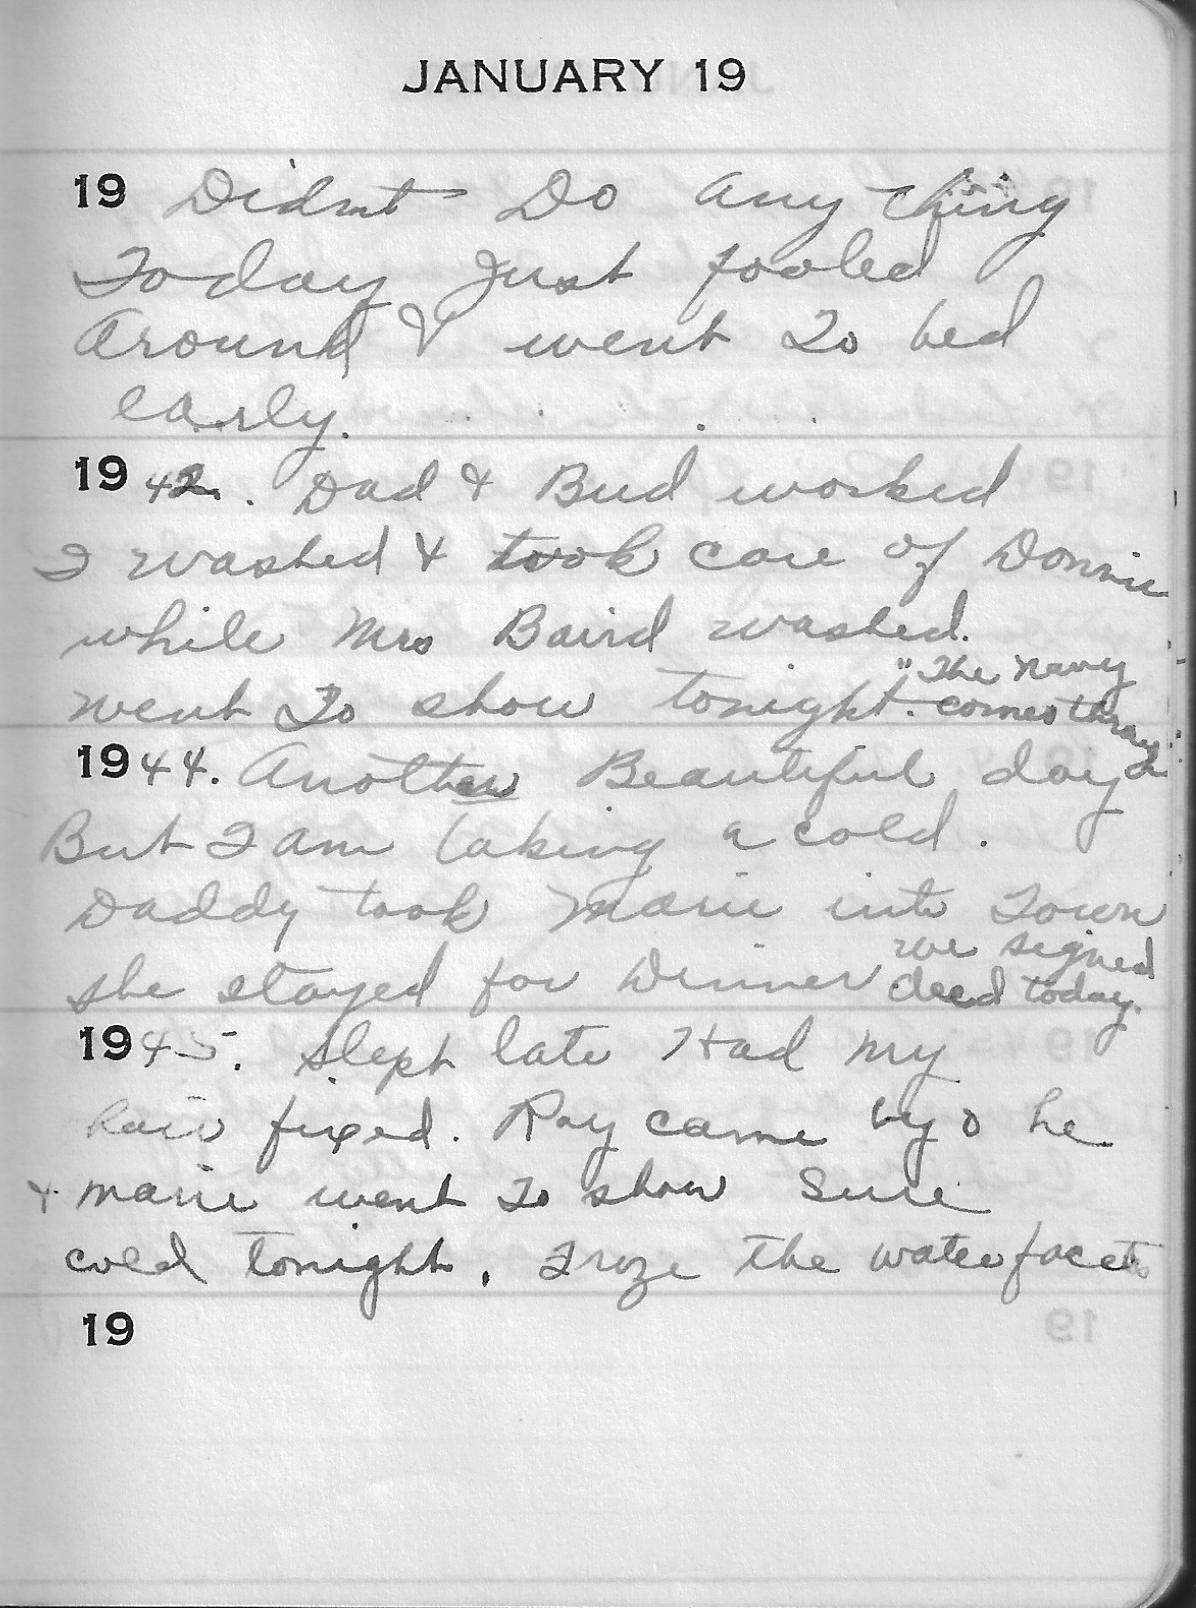 JANUARY 19
19 Didnt Do any thing
Today Just fooled
Around & went To bed
early.
19 42. Dad & Bud worked
I washed & took care of Donnie
while Mrs Baird washed.
went To show tonight. "The Navy
comes through
19 44. Another Beautiful day
But I am taking a cold.
Daddy took Marie into Town
she stayed for Dinner we signed
deed today.
19 45. Slept late Had my
hair fixed. Ray came by & he
& Marie went To show Sure
cold tonight. Froze the water facets
19